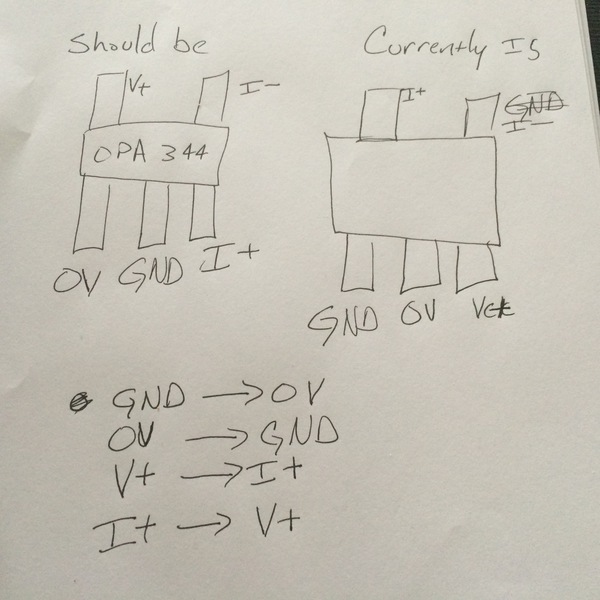 Should be
V+
I-
OPA 344
OV
GND
I+
Currently Is
I+
GND
I-
GND
OV
GND → OV
OV → GND
V+ → I+
I+ → V+